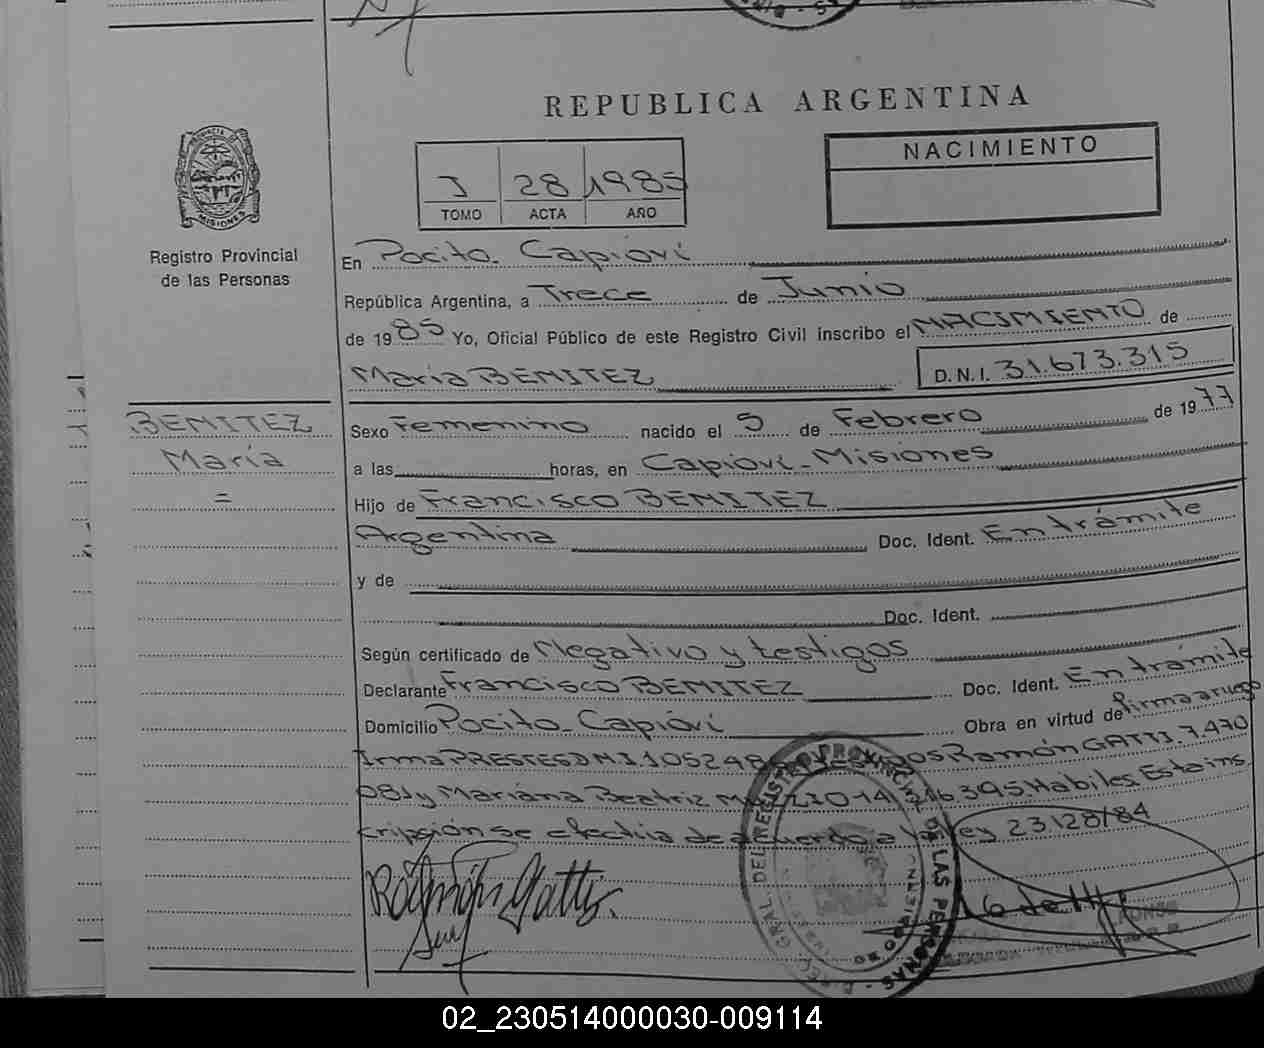 REPUBLICA ARGENTINA
I 28 1985
TOMO ACTA AÑO
NACIMIENTO
MISIONES
Registro Provincial
de las Personas
En Pocito - Capioví
República Argentina, a Trece de Junio
de 1985 Yo, Oficial Público de este Registro Civil inscribo el NACIMIENTO de
María BENITEZ D.N.I. 31.673.315
BENITEZ
María
=
Sexo Femenino nacido el 5 de Febrero de 1977
a las horas, en Capioví - Misiones
Hijo de Francisco BENITEZ
Argentina Doc. Ident. En trámite
y de
Doc. Ident.
Según certificado de Negativo y testigos
Declarante Francisco BENITEZ Doc. Ident. En trámite
Domicilio Pocito - Capioví Obra en virtud de firma a ruego
Irma PRESTES DNI 10524 Ramón GATTI 7.470
081 y Mariana Beatriz 14 395 Hábiles Esta ins
cripción se efectúa de acuerdo a la ley 23128/84
Ramón Gatti
REGISTRO PROVINCIAL DE LAS PERSONAS
02_230514000030-009114